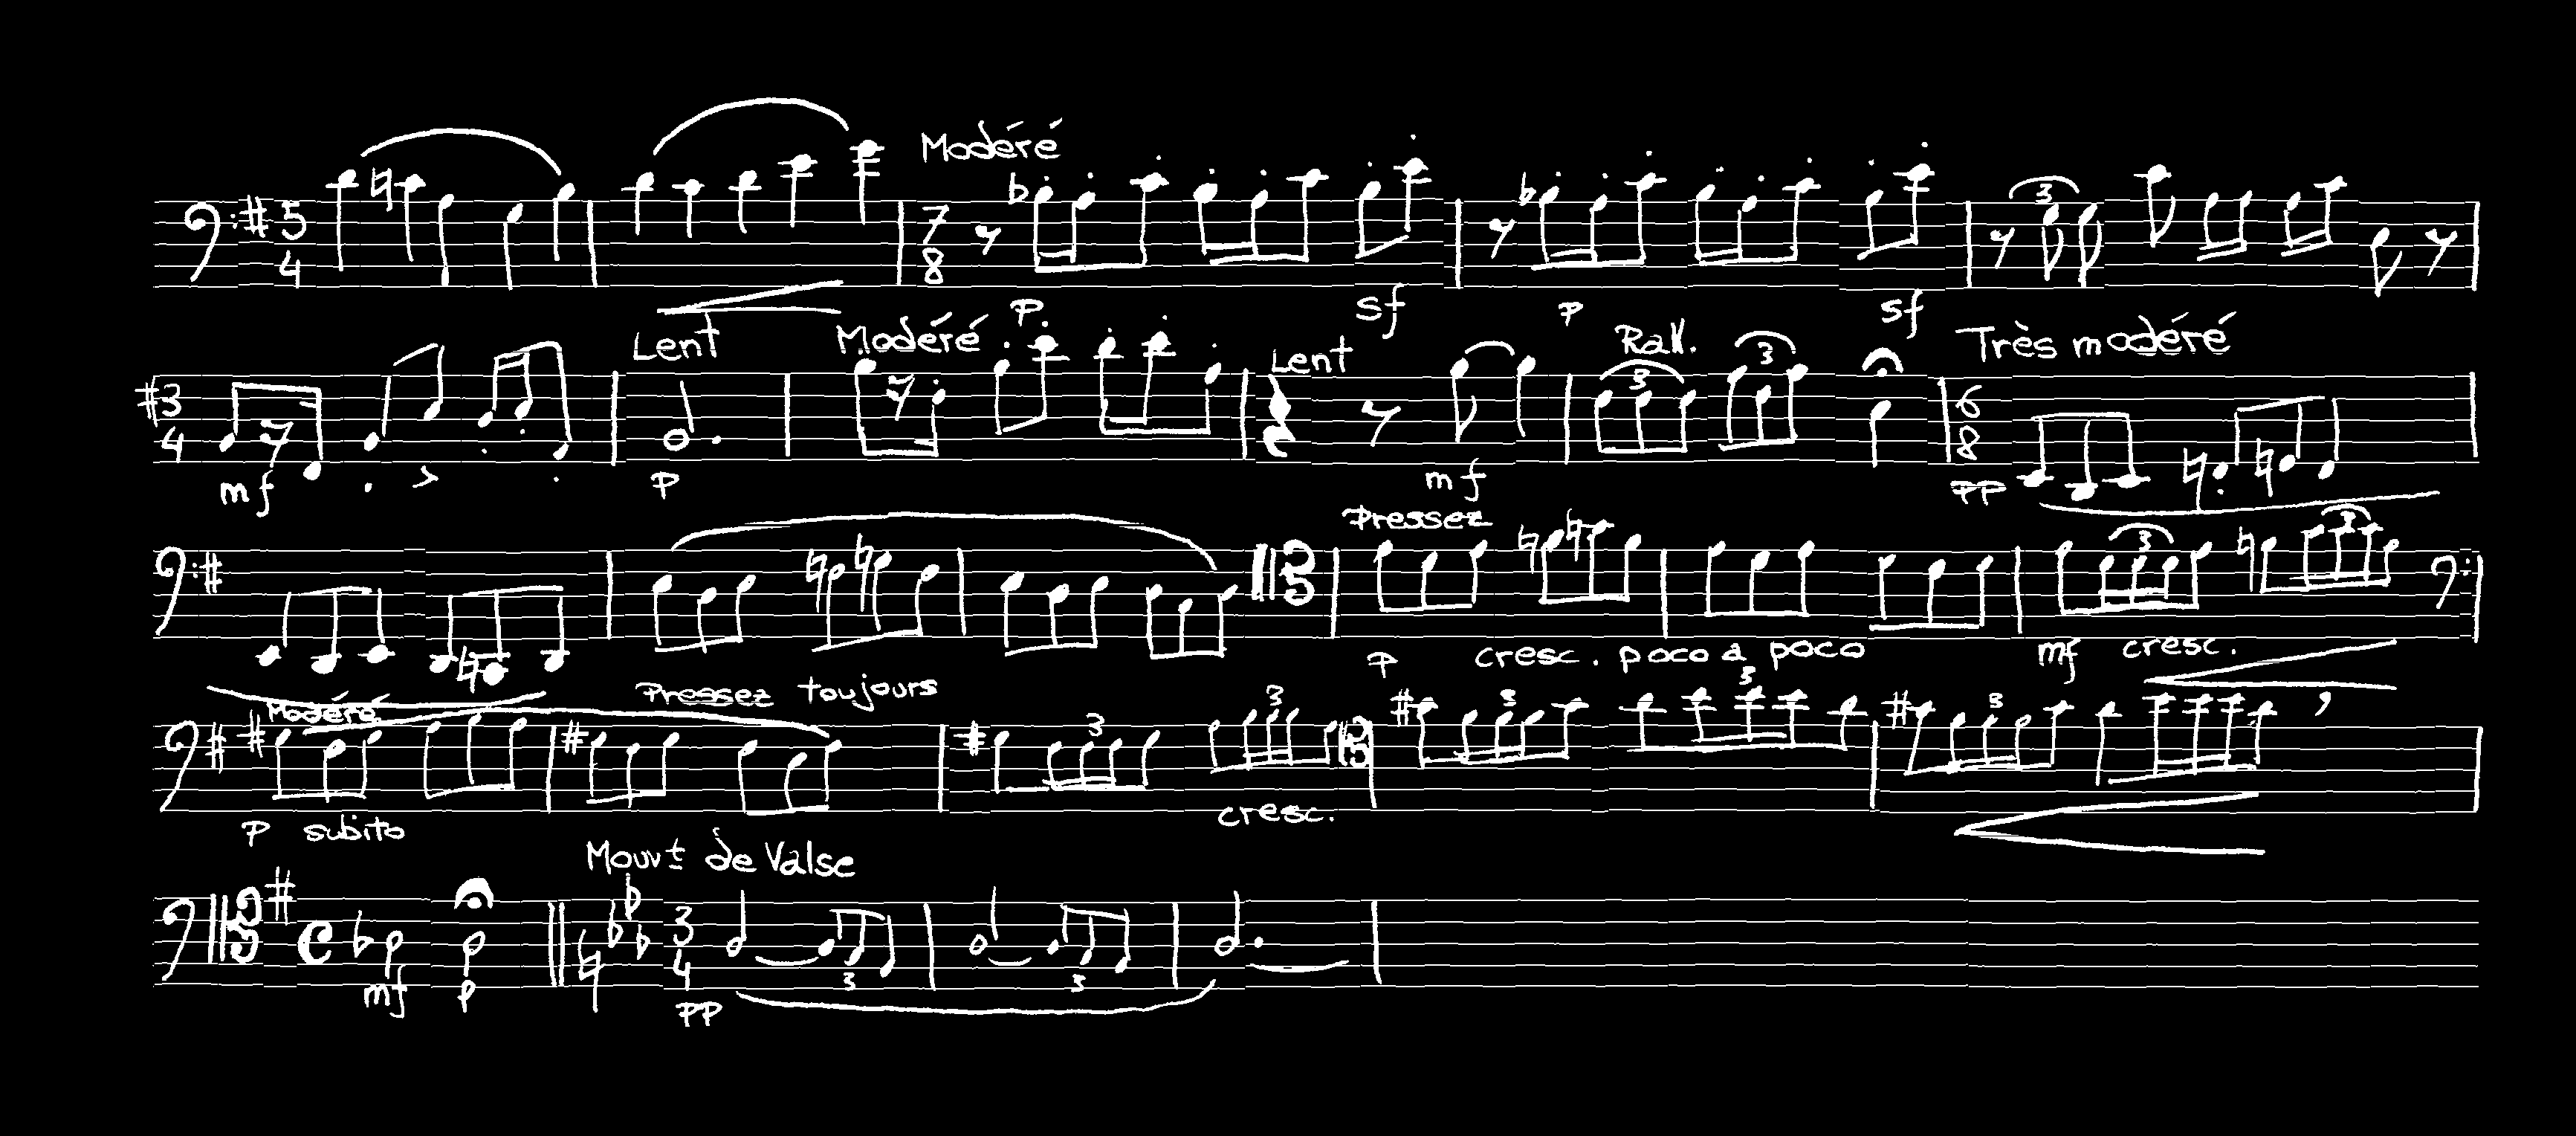 Modéré
5 4 7 8 3
p sf p sf
Lent Modéré Lent Rall. Très modéré
3 4 3 3 6 8
mf p mf pp
Pressez
3 3
p cresc. poco a poco mf cresc.
Modéré Pressez toujours
3 3 3 3 3
p subito cresc.
Mouvt de Valse
C 3 4
mf p pp 3 3